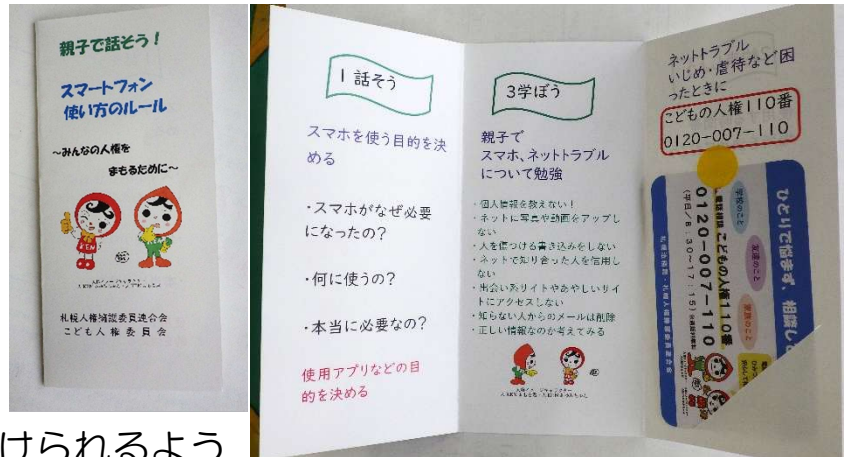 親子で話そう!
スマートフォン
使い方のルール
~みんなの人権を
まもるために~
札幌人権擁護委員連合会
こども人権委員会
1話そう
スマホを使う目的を決
める
・スマホがなぜ必要
になったの?
・何に使うの?
・本当に必要なの?
使用アプリなどの目
的を決める
3学ぼう
親子で
スマホ、ネットトラブル
について勉強
・個人情報を教えない!
・ネットに写真や動画をアップし
ない
・人を傷つける書き込みをしない
・ネットで知り合った人を信用し
ない
・出会い系サイトやあやしいサイ
トにアクセスしない
・知らない人からのメールは削除
・正しい情報なのか考えてみる
ネットトラブル
いじめ・虐待など困
ったときに
こどもの人権110番
0120-007-110
ひとりで悩まず、相談し
学校のこと
友達のこと
家族のこと
電話相談 こどもの人権110番
0120-007-110
(平日/8:30~17:15)
札幌法務局・札幌人権擁護委員連合会
けられるよう